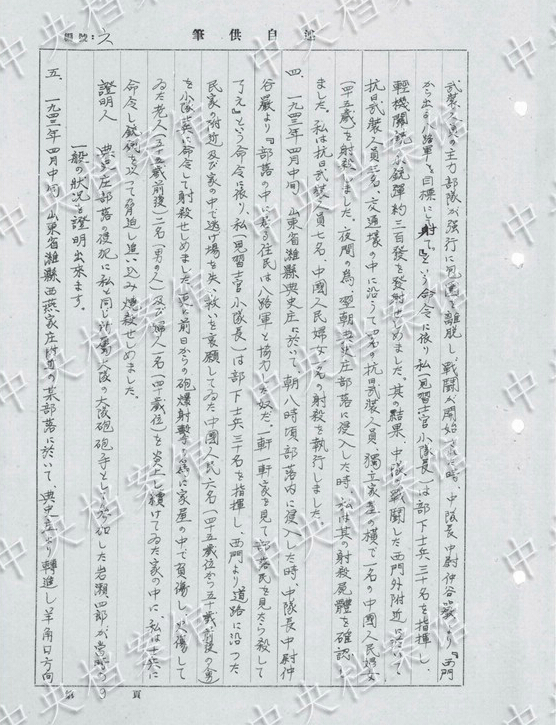 筆供白
武装人員の主力部隊が強行に包囲を離脱し、戦闘が開始された時、中隊長中尉仲谷巌より『西門
から出る八路軍を目標にして射て』という命令に依り私（見習士官小隊長）は部下士兵三十名を指揮し、
輕機関銃、小銃彈約三百發を發射せしめました。其の結果、中隊が戦闘した西門外附近に於いて
抗日武装人員三名、交通壕の中に沿うて四名の抗日武装人員、獨立家屋の横で一名の中国人民婦女
（四十五歳）を射殺しました。夜間の為、翌朝典史庄部落に侵入した時、私は其の射殺屍體を確認し
ました。私は抗日武装人員七名、中国人民婦女一名の射殺を執行しました。
四、一九四三年四月中旬、山東省濰縣典史庄に於いて、朝八時頃部落内に侵入した時、中隊長中尉仲
谷巌より『部落の中に居る住民は八路軍と協力した奴だ。一軒一軒家を見て部落民を見たら殺して
了え』という命令に依り、私（見習士官小隊長）は部下士兵三十名を指揮し、西門より道路に沿った
民家の附近及び家の中で逃げ場を失い、救いを哀願してゐた中国人民六名（四十五歳位から五十歳前後の男）
を小隊兵に命令して射殺せしめました。更に前日からの砲爆射撃の為に家屋の中で負傷し
ゐた老人（五十五歳前後）二名（男の人）及び婦人一名（四十歳位）を炎上し續けてゐた家の中に、私は士兵に
命令し銃劍を以て脅迫し追い込み焼殺せしめました。
證明人　典史庄部落の侵犯に私と同じ
一般の状況を證明出来ます。
五、一九四三年四月中旬、山東省濰縣西燕家庄附近の某部落に於いて、典史庄より轉進し羊角口方向
第　頁